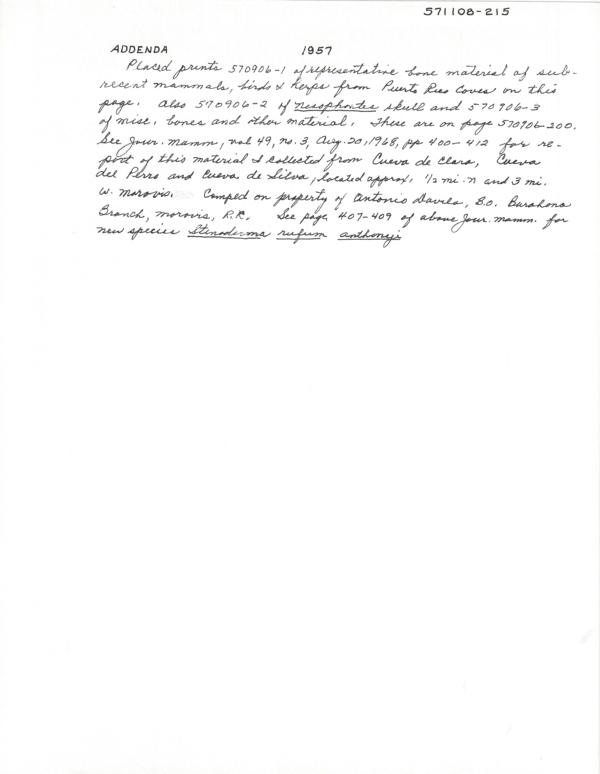 571108-215
ADDENDA 1957
Placed prints 570906-1 of representative bone material of sub-
recent mammals, birds & herps from Puerto Rico Caves on this
page. Also 570906-2 of Nesophontes skull and 570906-3
of misc. bones and other material. These are on page 570906-200.
See Jour. Mamm, vol 49, no. 3, Aug. 20, 1968, pp 400-412 for re-
port of this material I collected from Cueva de Clara, Cueva
del Perro and Cueva de Silva, located approx. 1/2 mi. N and 3 mi.
W. Morovis. Camped on property of Antonio Davila, B.O. Barahona
Branch, Morovis, P.R. See page 407-409 of above Jour. Mamm. for
new species Stenoderma rufum anthonyi